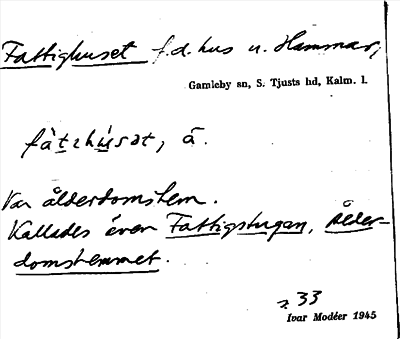 Fattighuset f.d. hus u. Hammar,
Gamleby sn, S. Tjusts hd, Kalm. l.
fàt:ɩhúsət, å.
Var ålderdomshem.
Kallades även Fattigstugan, Ålder-
domshemmet.
s. 33
Ivar Modéer 1945